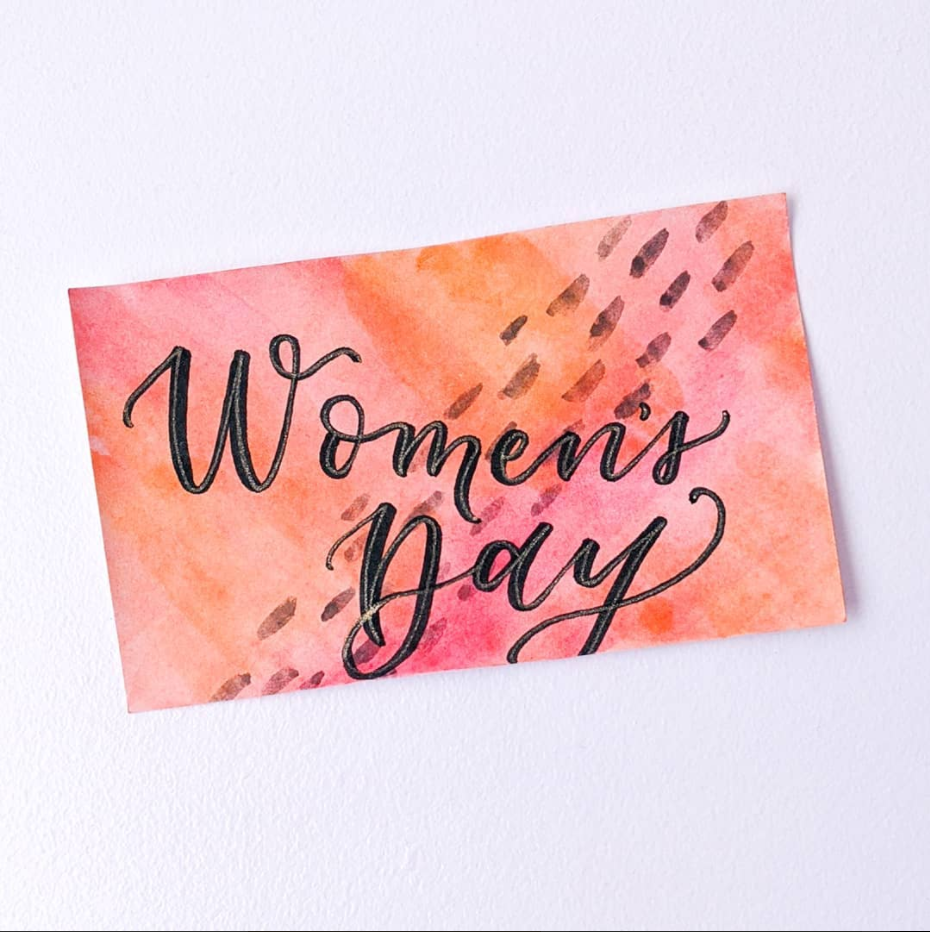 Women's
Day